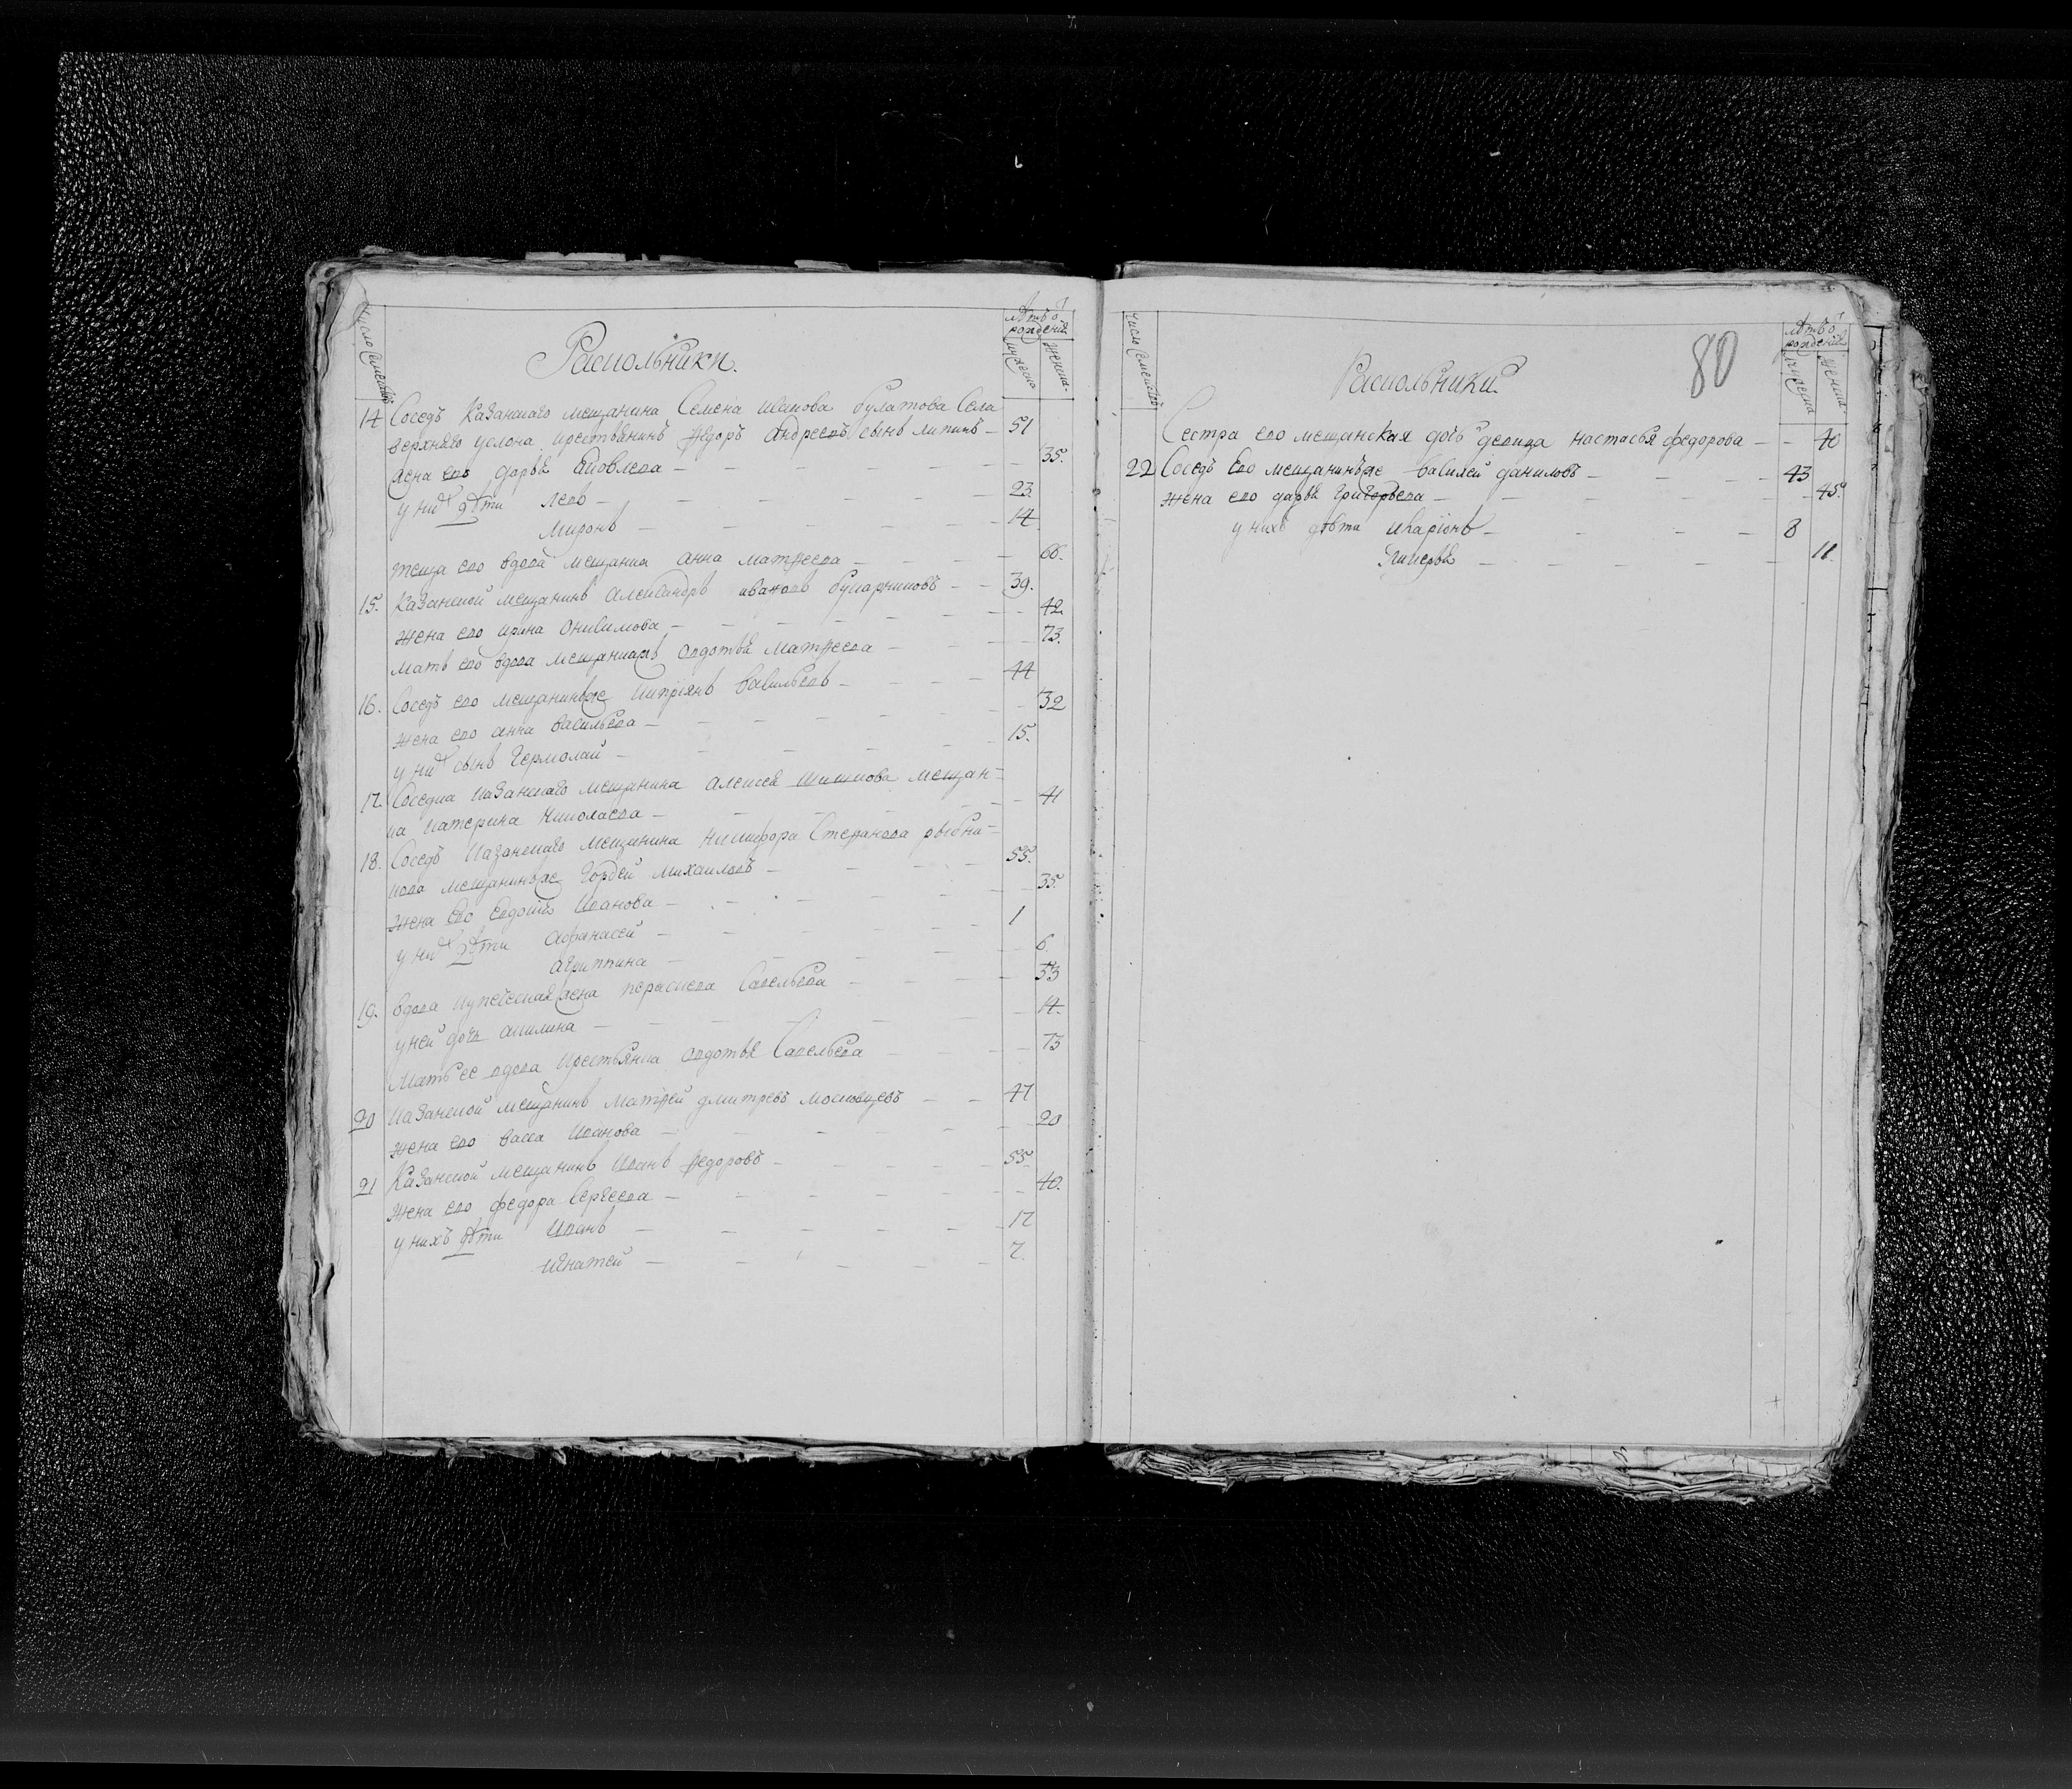 число семействъ
Раскольники.
лѣтъ ѿ рожденія
мужеска
женска
14 Соседъ казанскаго мещанина Семена иванова булатова Села
верхняго услона крестьянинъ ѳедоръ андреевъ сынъ липинъ 51
жена ево дарья яковлева 35.
у них дѣти левъ 23.
миронъ 14
теща ево вдова мещанка анна матѳеева 66.
15. казанской мещанинъ александръ ивановъ бумажниковъ 39.
жена ево ирина онисимова 42.
мать ево вдова мещанская овдотья матѳеева 73.
16. Соседъ ево мещанинъже киприянъ васильевъ 44
жена ево анна васильева 32
у них сынъ Гермолай 15.
17. Соседка казанскаго мещанина алексея шишкова мещан=
ка катерина николаева 41
18. Соседъ казанскаго мещанина никифора Степанова рыбни=
кова мещанинъже Гордей михаиловъ 55.
жена ево Евдокия иванова 35.
у них дѣти афанасей 1
агрипина 6.
19. вдова купеческая жена парасковья Савельева 53
у ней дочь акилина 14.
мать ее вдова крестьянка овдотья Савельева 73
20 казанской мещанинъ матѳей дмитревъ московцевъ 47
жена ево васса иванова 20
21 казанской мещанинъ иванъ ѳедоровъ 55.
жена ево федора Сергеева 40.
у нихъ дѣти иванъ 17
игнатей 7.
число семействъ
Раскольники
80
лѣтъ ѿ рожденія
мужеска
женска
Сестра ево мещанская дочь девица настасья федорова 40
22 Соседъ Ево мещанинъже василей даниловъ 43
жена ево дарья григорьева 45.
у нихъ дѣти иларіонъ 8
Гликерья 11.